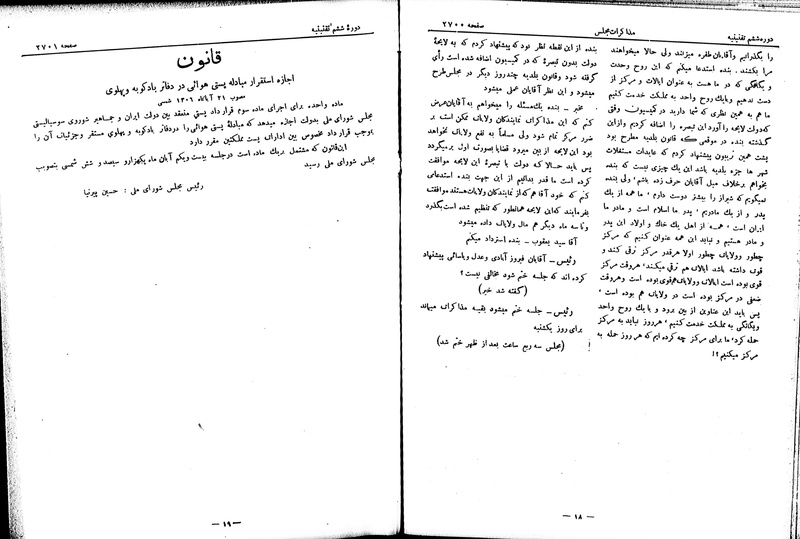 دوره ششم تقنینیه
مذاکرات مجلس
صفحه ۲۷۰۰
را بگذرانیم وآقایان طفره میزنند ولی حالا میخواهند
مرا بکشند. بنده استدعا میکنم که این روح وحدت
و یگانگی که در ما هست به عنوان ایالات و مرکز از
دست ندهیم وبایك روح واحد به مملکت خدمت کنیم
ما هم به همین نظری که شما دارید در کمیسیون وقتی
که دولت لایحه را آورد این تبصره را اضافه کردیم واز این
گذشته بنده در موقعی که قانون بلدیه مطرح بود
پشت همین تریبون پیشنهاد کردم که عایدات مستغلات
شهر ها جزء بلدیه باشد این یك چیزی نیست که بنده
بخواهم برخلاف میل آقایان حرف زده باشم، ولی بنده
نمیگویم که شیراز را بیشتر دوست دارم، ما همه از یك
پدر و از یك مادریم، پدر ما اسلام است و مادر ما
ایران است، همه از اهل یك خاك و اولاد این پدر
و مادر هستیم و نباید این همه عنوان کنیم که مرکز
چطور وولایات چطور اولا هرقدر مرکز ترقی کند و
قوی داشته باشد ایالات هم ترقی میکنند، هروقت مرکز
قوی بوده است ایالات وولایات هم قوی بوده است وهروقت
ضعفی در مرکز بوده است در ولایات هم بوده است،
پس باید این عناوین از بین برود و بایك روح واحد
ویگانگی به مملکت خدمت کنیم، هرروز نباید به مرکز
حمله کرد، ما برای مرکز چه کرده ایم که هر روز حمله به
مرکز میکنیم؟!
بنده از این نقطه نظر بود که پیشنهاد کردم که به لایحهٔ
دولت بدون تبصرهٔ که در کمیسیون اضافه شده است رأی
گرفته شود وقانون بلدیه چندروز دیگر در مجلس طرح
میشود و این نظر آقایان عملی میشود
مخبر - بنده یك مسئله را میخواهم به آقایان عرض
کنم که این مذاکرات نمایندگان ولایات ممکن است بر
ضرر مرکز تمام شود ولی مسلماً به نفع ولایات نخواهد
بود این لایحه از بین میرود قضایا بصورت اول برمیگردد
پس باید حالا که دولت با تبصرهٔ این لایحه موافقت
کرده است ما قدر بدانیم از این جهت بنده استدعا می
کنم که خود آقا هم که از نمایندگان ولایات هستند موافقت
بفرمایند که این لایحه همانطور که تنظیم شده است بگذرد
وتا سه ماه دیگر هم مال ولایات داده میشود
آقا سید یعقوب - بنده استرداد میکنم
رئیس - آقایان فیروز آبادی وعدل ویاسائی پیشنهاد
کرده اند که جلسه ختم شود مخالفی نیست؟
(گفته شد خیر)
رئیس - جلسه ختم میشود بقیه مذاکرات میماند
برای روز یکشنبه
(مجلس سه ربع ساعت بعد از ظهر ختم شد)
— ۱۸ —
دورهٔ ششم تقنینیه
صفحه ۲۷۰۱
قانون
اجازه استقرار مبادله پستی هوائی در دفاتر بادکوبه و پهلوی
مصوب ۲۱ آبانماه ۱۳۰۶ شمسی
ماده واحده برای اجرای ماده سوم قرارداد پستی منعقد بین دولت ایران و جماهیر شوروی سوسیالیستی
مجلس شورای ملی بدولت اجازه میدهد که مبادلهٔ پستی هوائی را در دفاتر بادکوبه و پهلوی مستقر و جزئیات آن را
بموجب قرارداد مخصوص بین ادارات پست مملکتین مقرر دارد
این قانون که مشتمل بریك ماده است درجلسه بیست ویکم آبان ماه یکهزارو سیصد و شش شمسی بتصویب
مجلس شورای ملی رسید
رئیس مجلس شورای ملی : حسین پیرنیا
— ۱۹ —